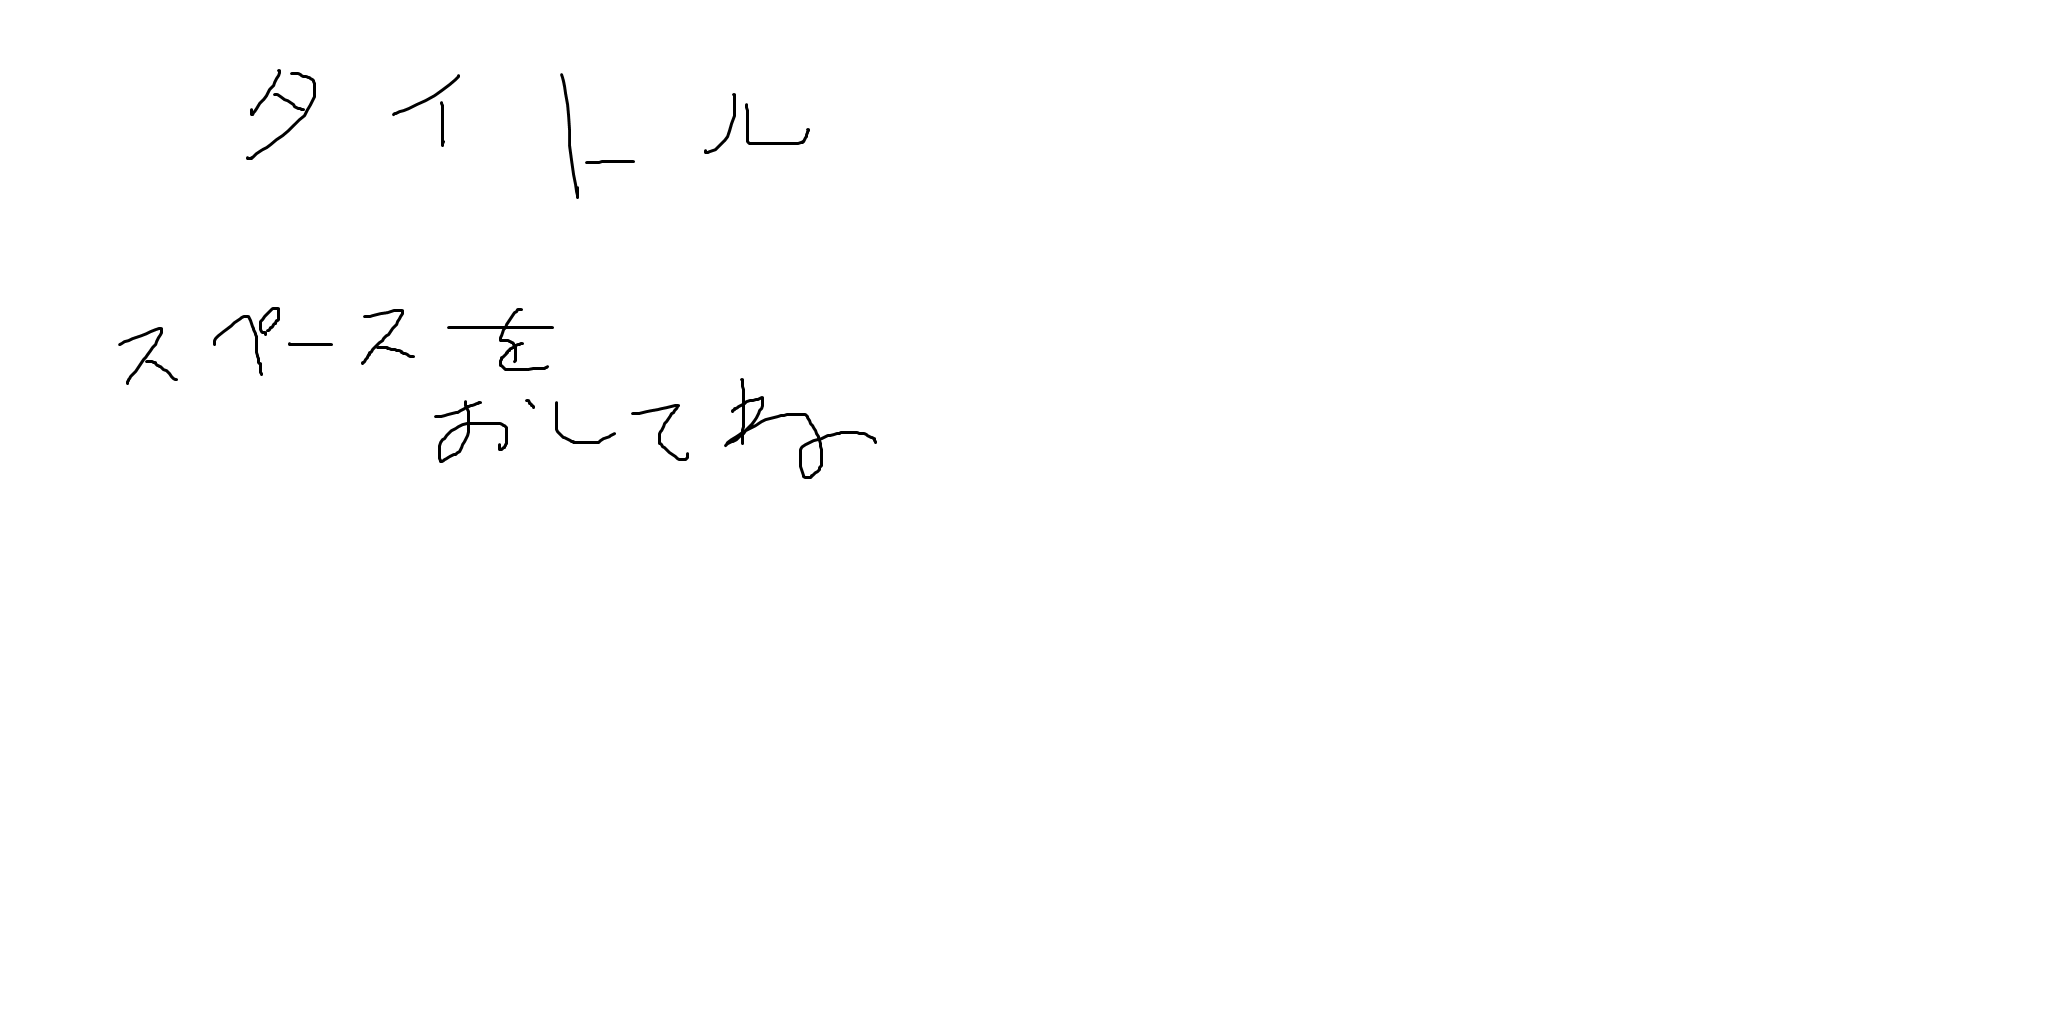 タイトル
スペースを
おしてね